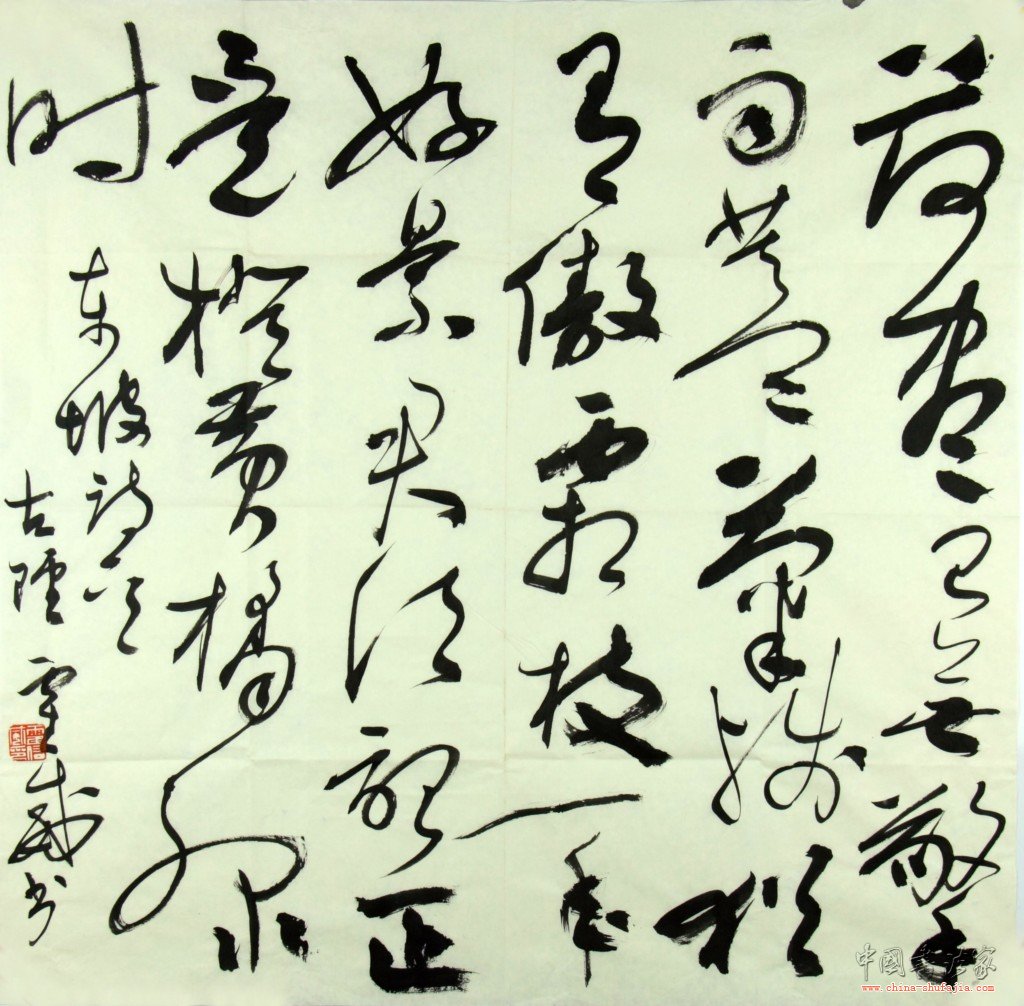 荷尽已无擎
雨盖菊残犹
有傲霜枝一年
好景君须记正
是橙黄橘绿
时
东坡诗
古 书
中國書法家
www.china-shufajia.com